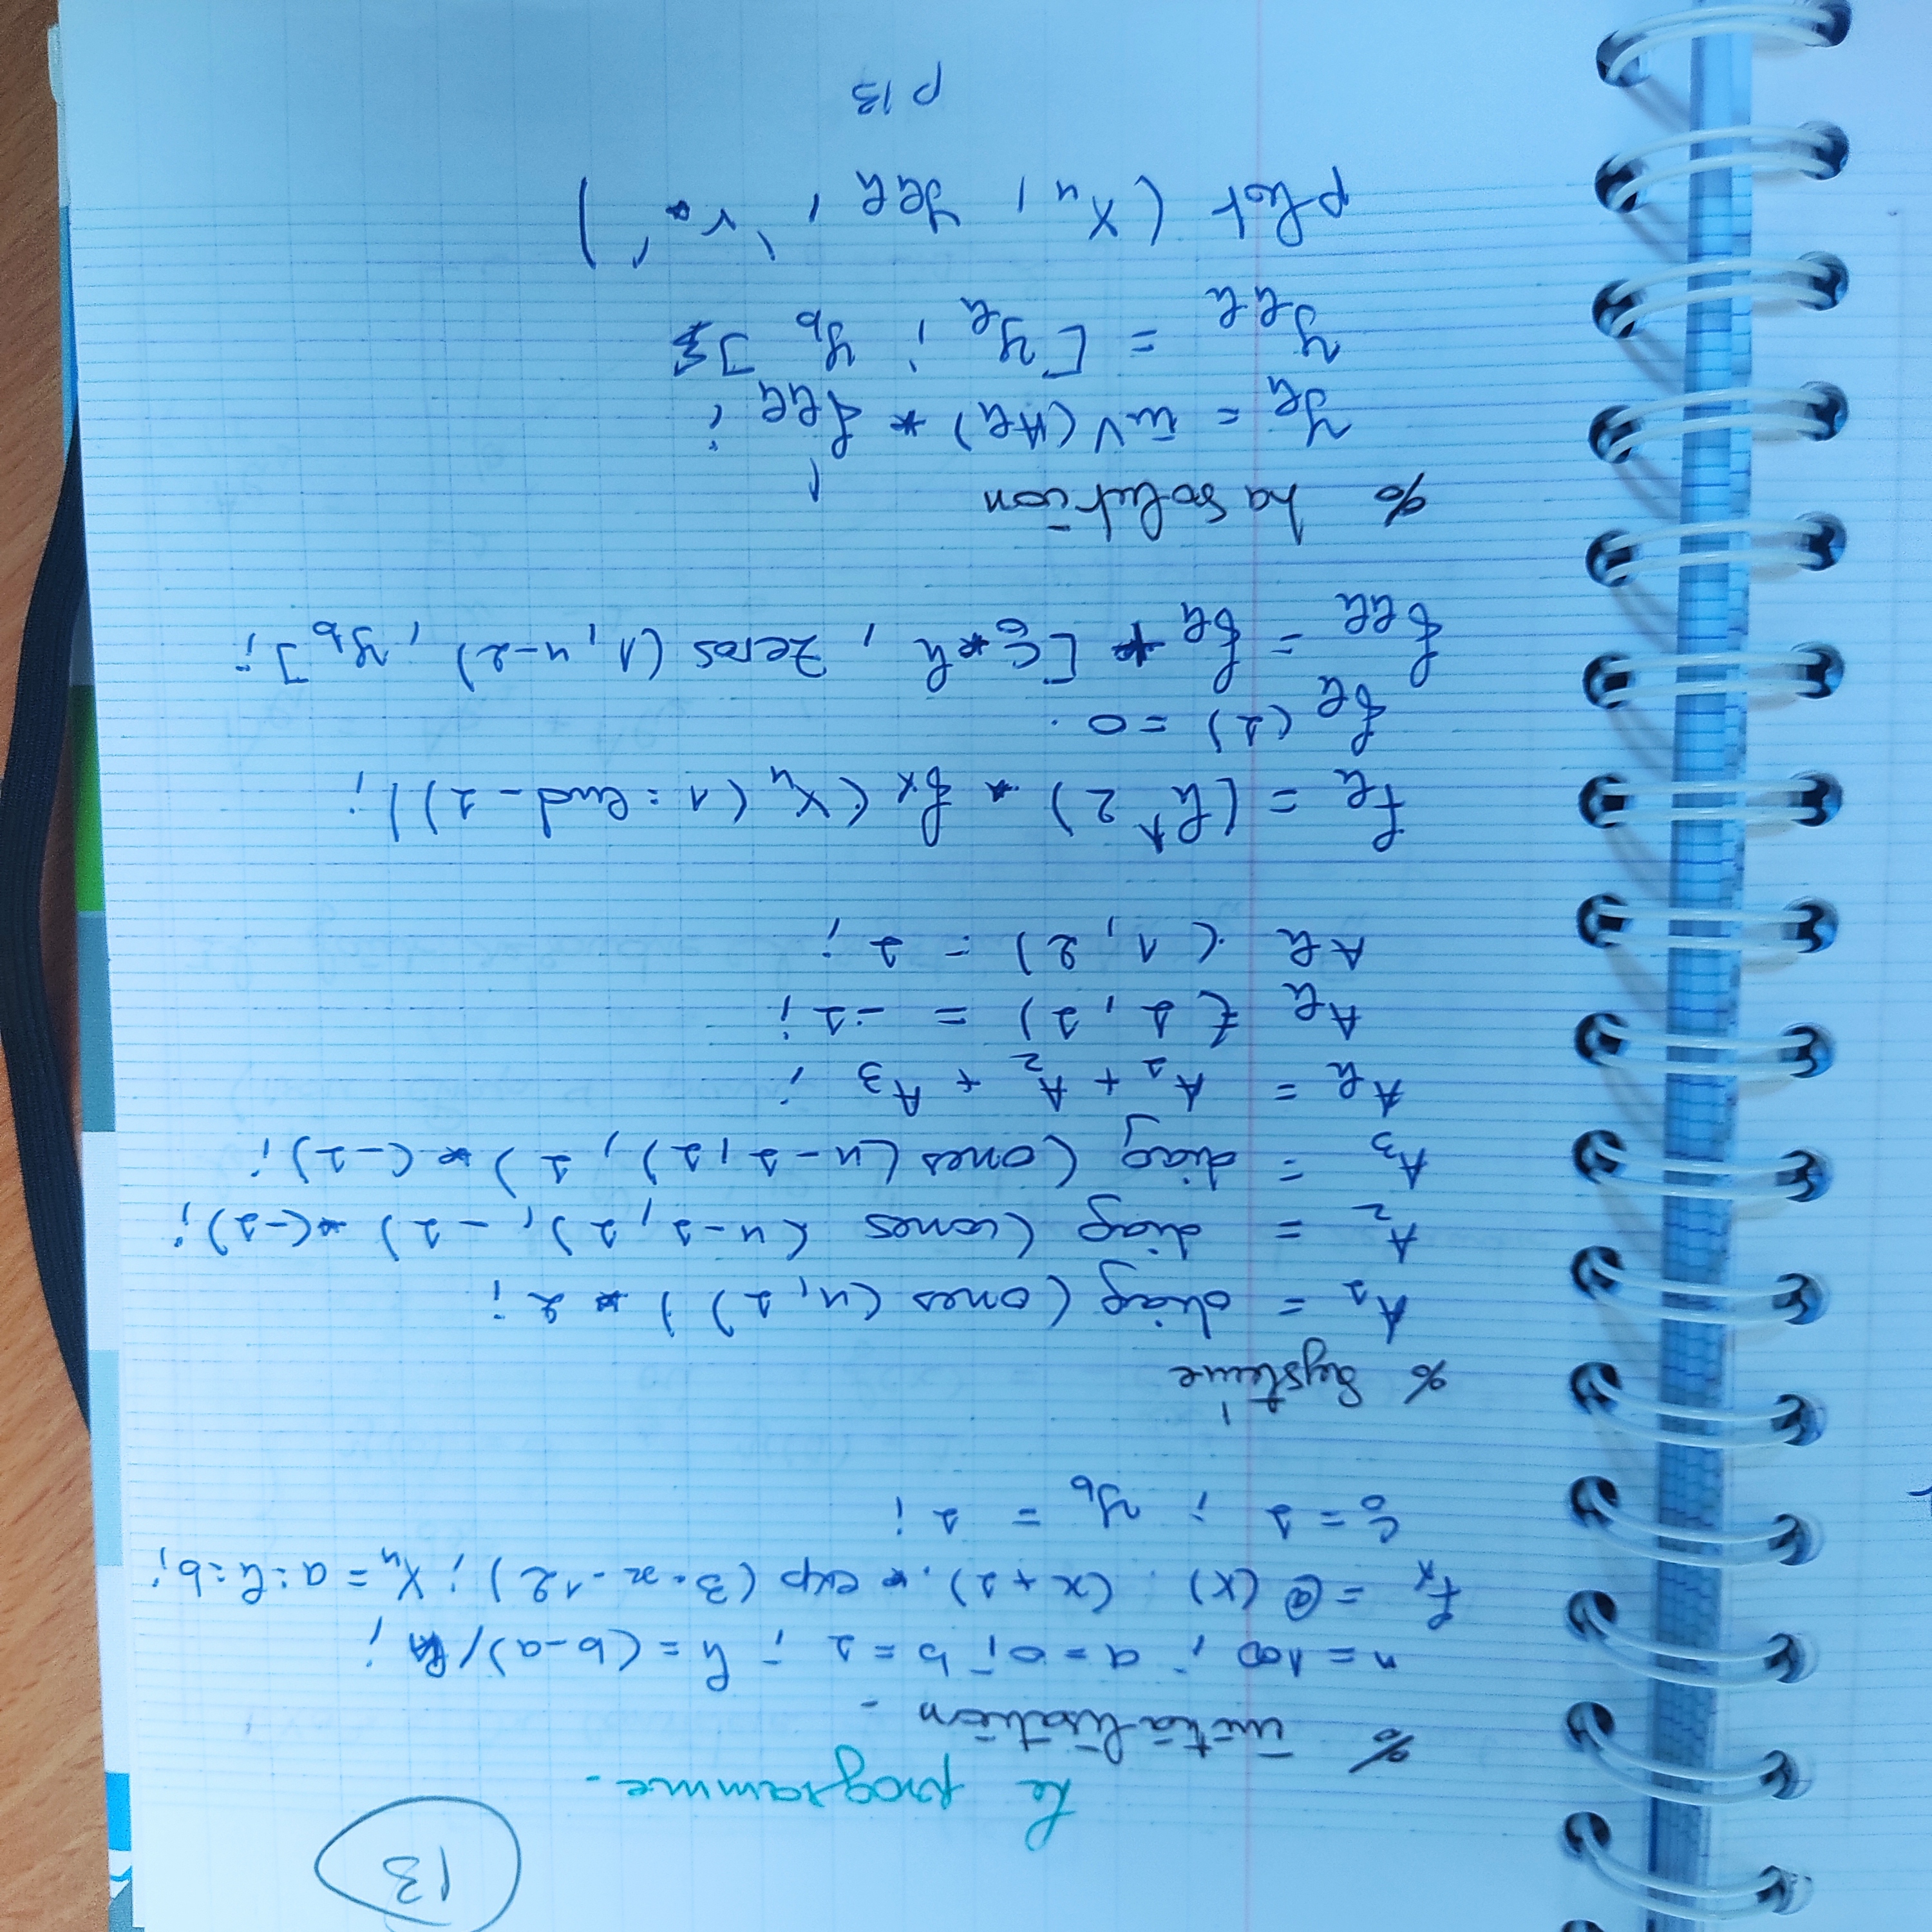 13
Le programme.
% initialisation.
n = 100 ; a = 0 ; b = 1 ; h = (b-a)/n ;
fx = @(x) (x+1).* exp(3*x-12) ; Xn = a:h:b;
c0 = 1 ; yb = 1 ;
% Système
A1 = diag(ones(n,1)) * 2 ;
A2 = diag(ones(n-1,1), -1) *(-1);
A3 = diag(ones(n-1,1), 1) * (-1);
Ah = A1 + A2 + A3 ;
Ah (1,1) = -1;
Ah (1,2) = 1 ;
fh = (h^2) * fx (Xn (1:end-1));
fh (1) = 0.
fhh = fh + [c0*h , zeros(1,n-2), yb];
% La solution
yh = inV(Ah) * fhh' ;
yhh = [yh ; yb];
plot (Xn, yhh, 'r*')
p 13